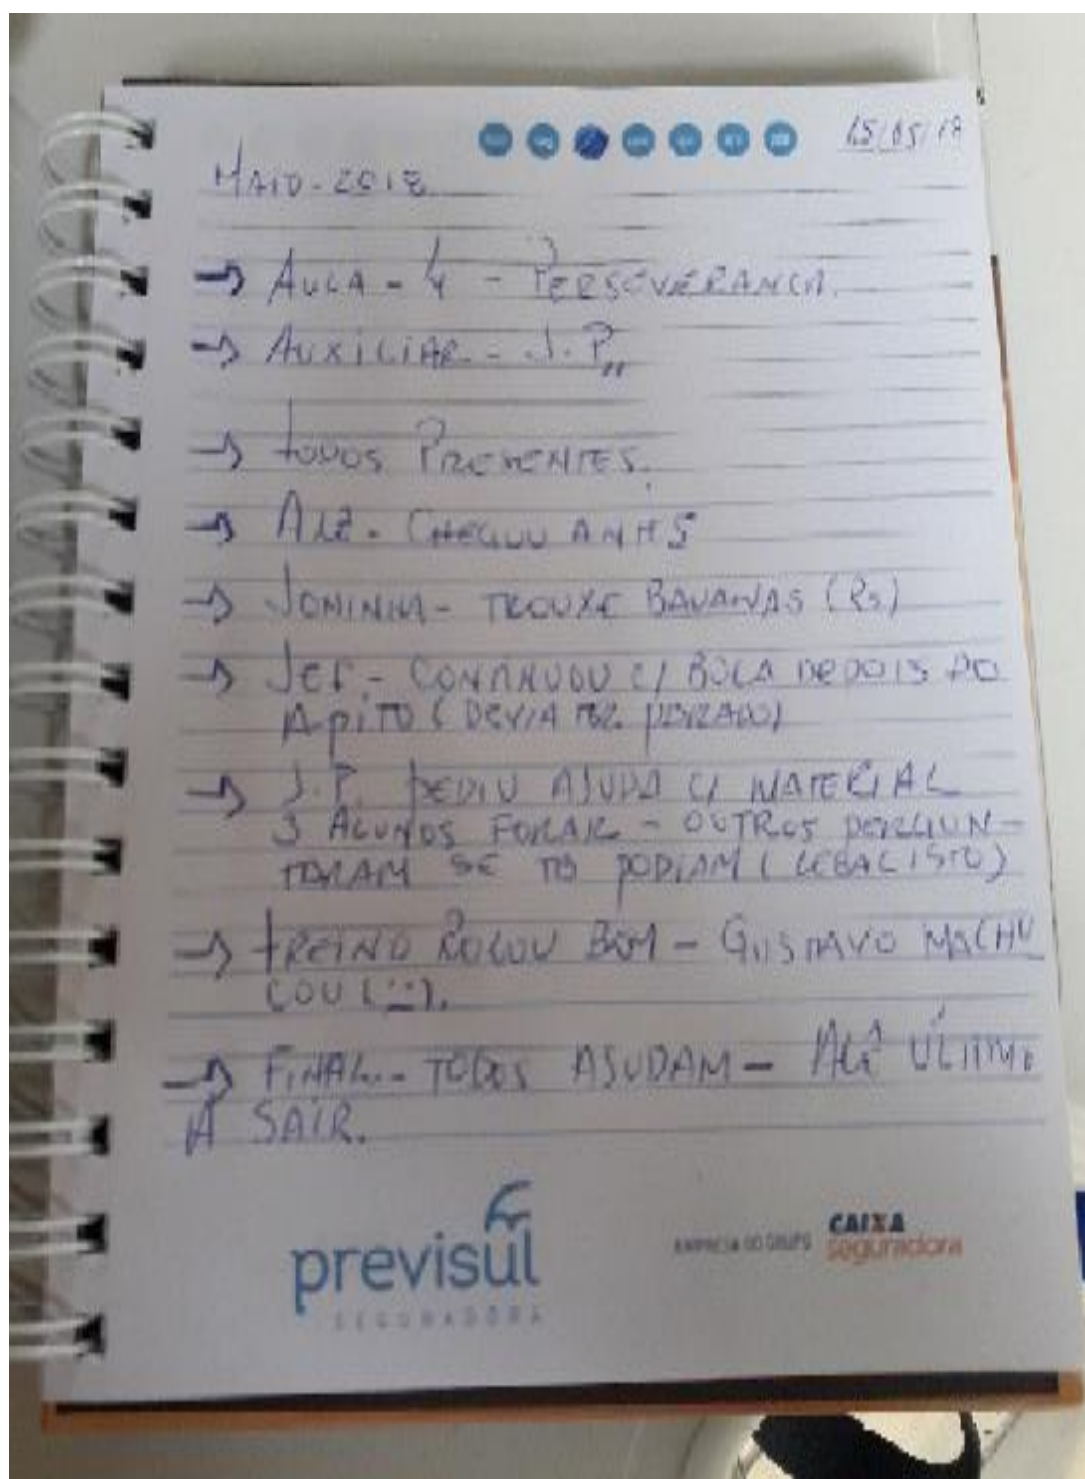 15/05/18
MAIO-2018
→ AULA - 4 - PERSEVERANCA.
→ AUXILIAR - J.P.,,
→ TODOS PRESENTES.
→ ALÊ - CHEGOU ANTES
→ JONINHA - TROUXE BANANAS (RS)
→ JEF. - CONTINUOU C/ BOLA DEPOIS DO
APITO (DEVIA TER PARADO)
→ J.P. PEDIU AJUDA C/ MATERIAL
3 ALUNOS FORAM - OUTROS PERGUN-
TARAM SE TB PODIAM
→ TREINO ROLOU BEM - GUSTAVO MACHU
COU (¨).
→ FINAL - TODOS AJUDAM - ALÊ ÚLTIMO
À SAIR.
previsul
SEGURADORA
EMPRESA DO GRUPO
CAIXA
seguradora